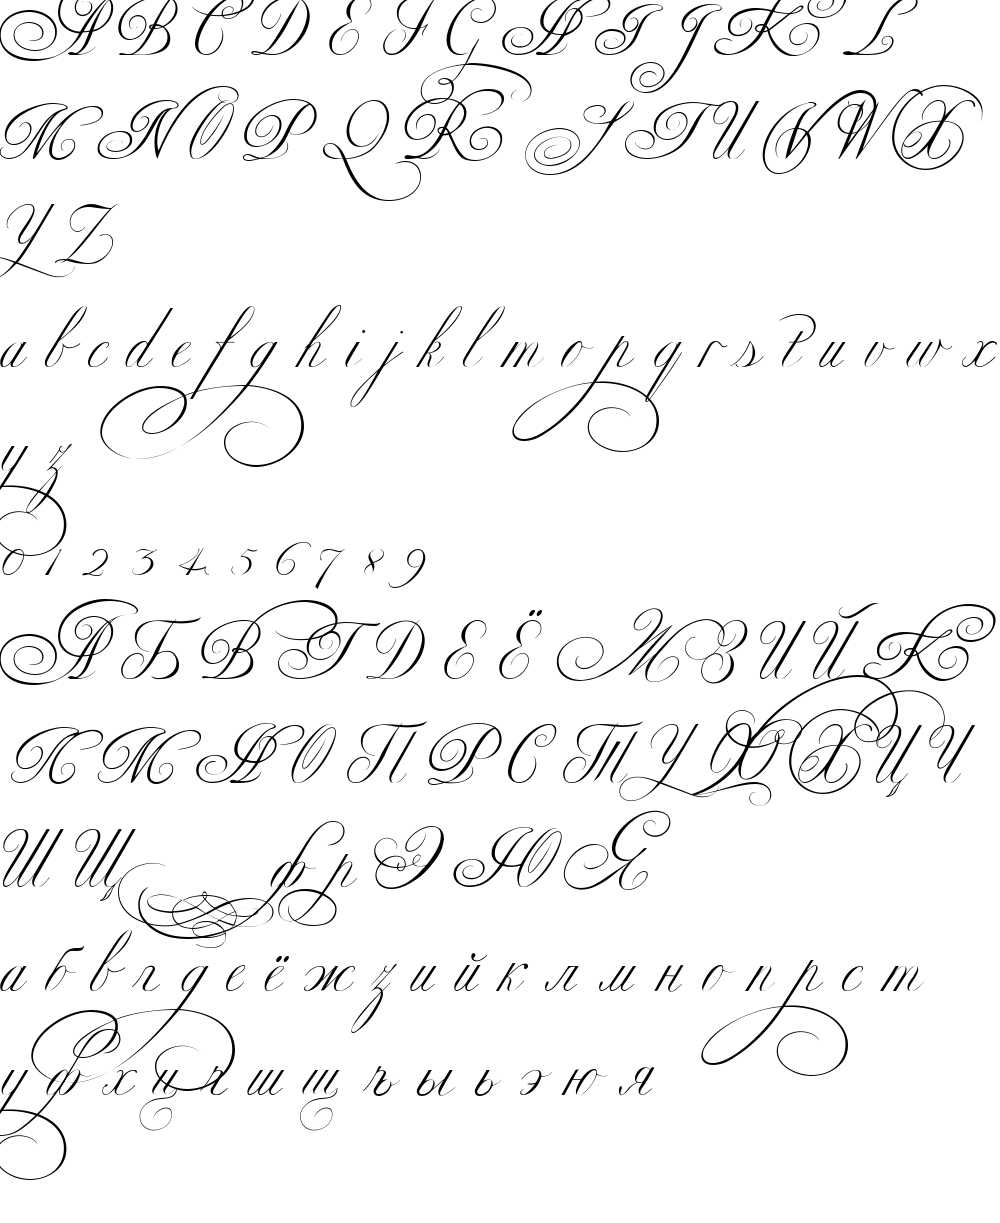 A B C D E F G H I J K L
M N O P Q R S T U V W X
Y Z
a b c d e f g h i j k l m o p q r s t u v w x
y z
0 1 2 3 4 5 6 7 8 9
А Б В Г Д Е Ё Ж З И Й К
Л М Н О П Р С Т У Ф Х Ц Ч
Ш Щ ф р Э Ю Я
а б в г д е ё ж з и й к л м н о п р с т
у ф х ц ч ш щ ъ ы ь э ю я